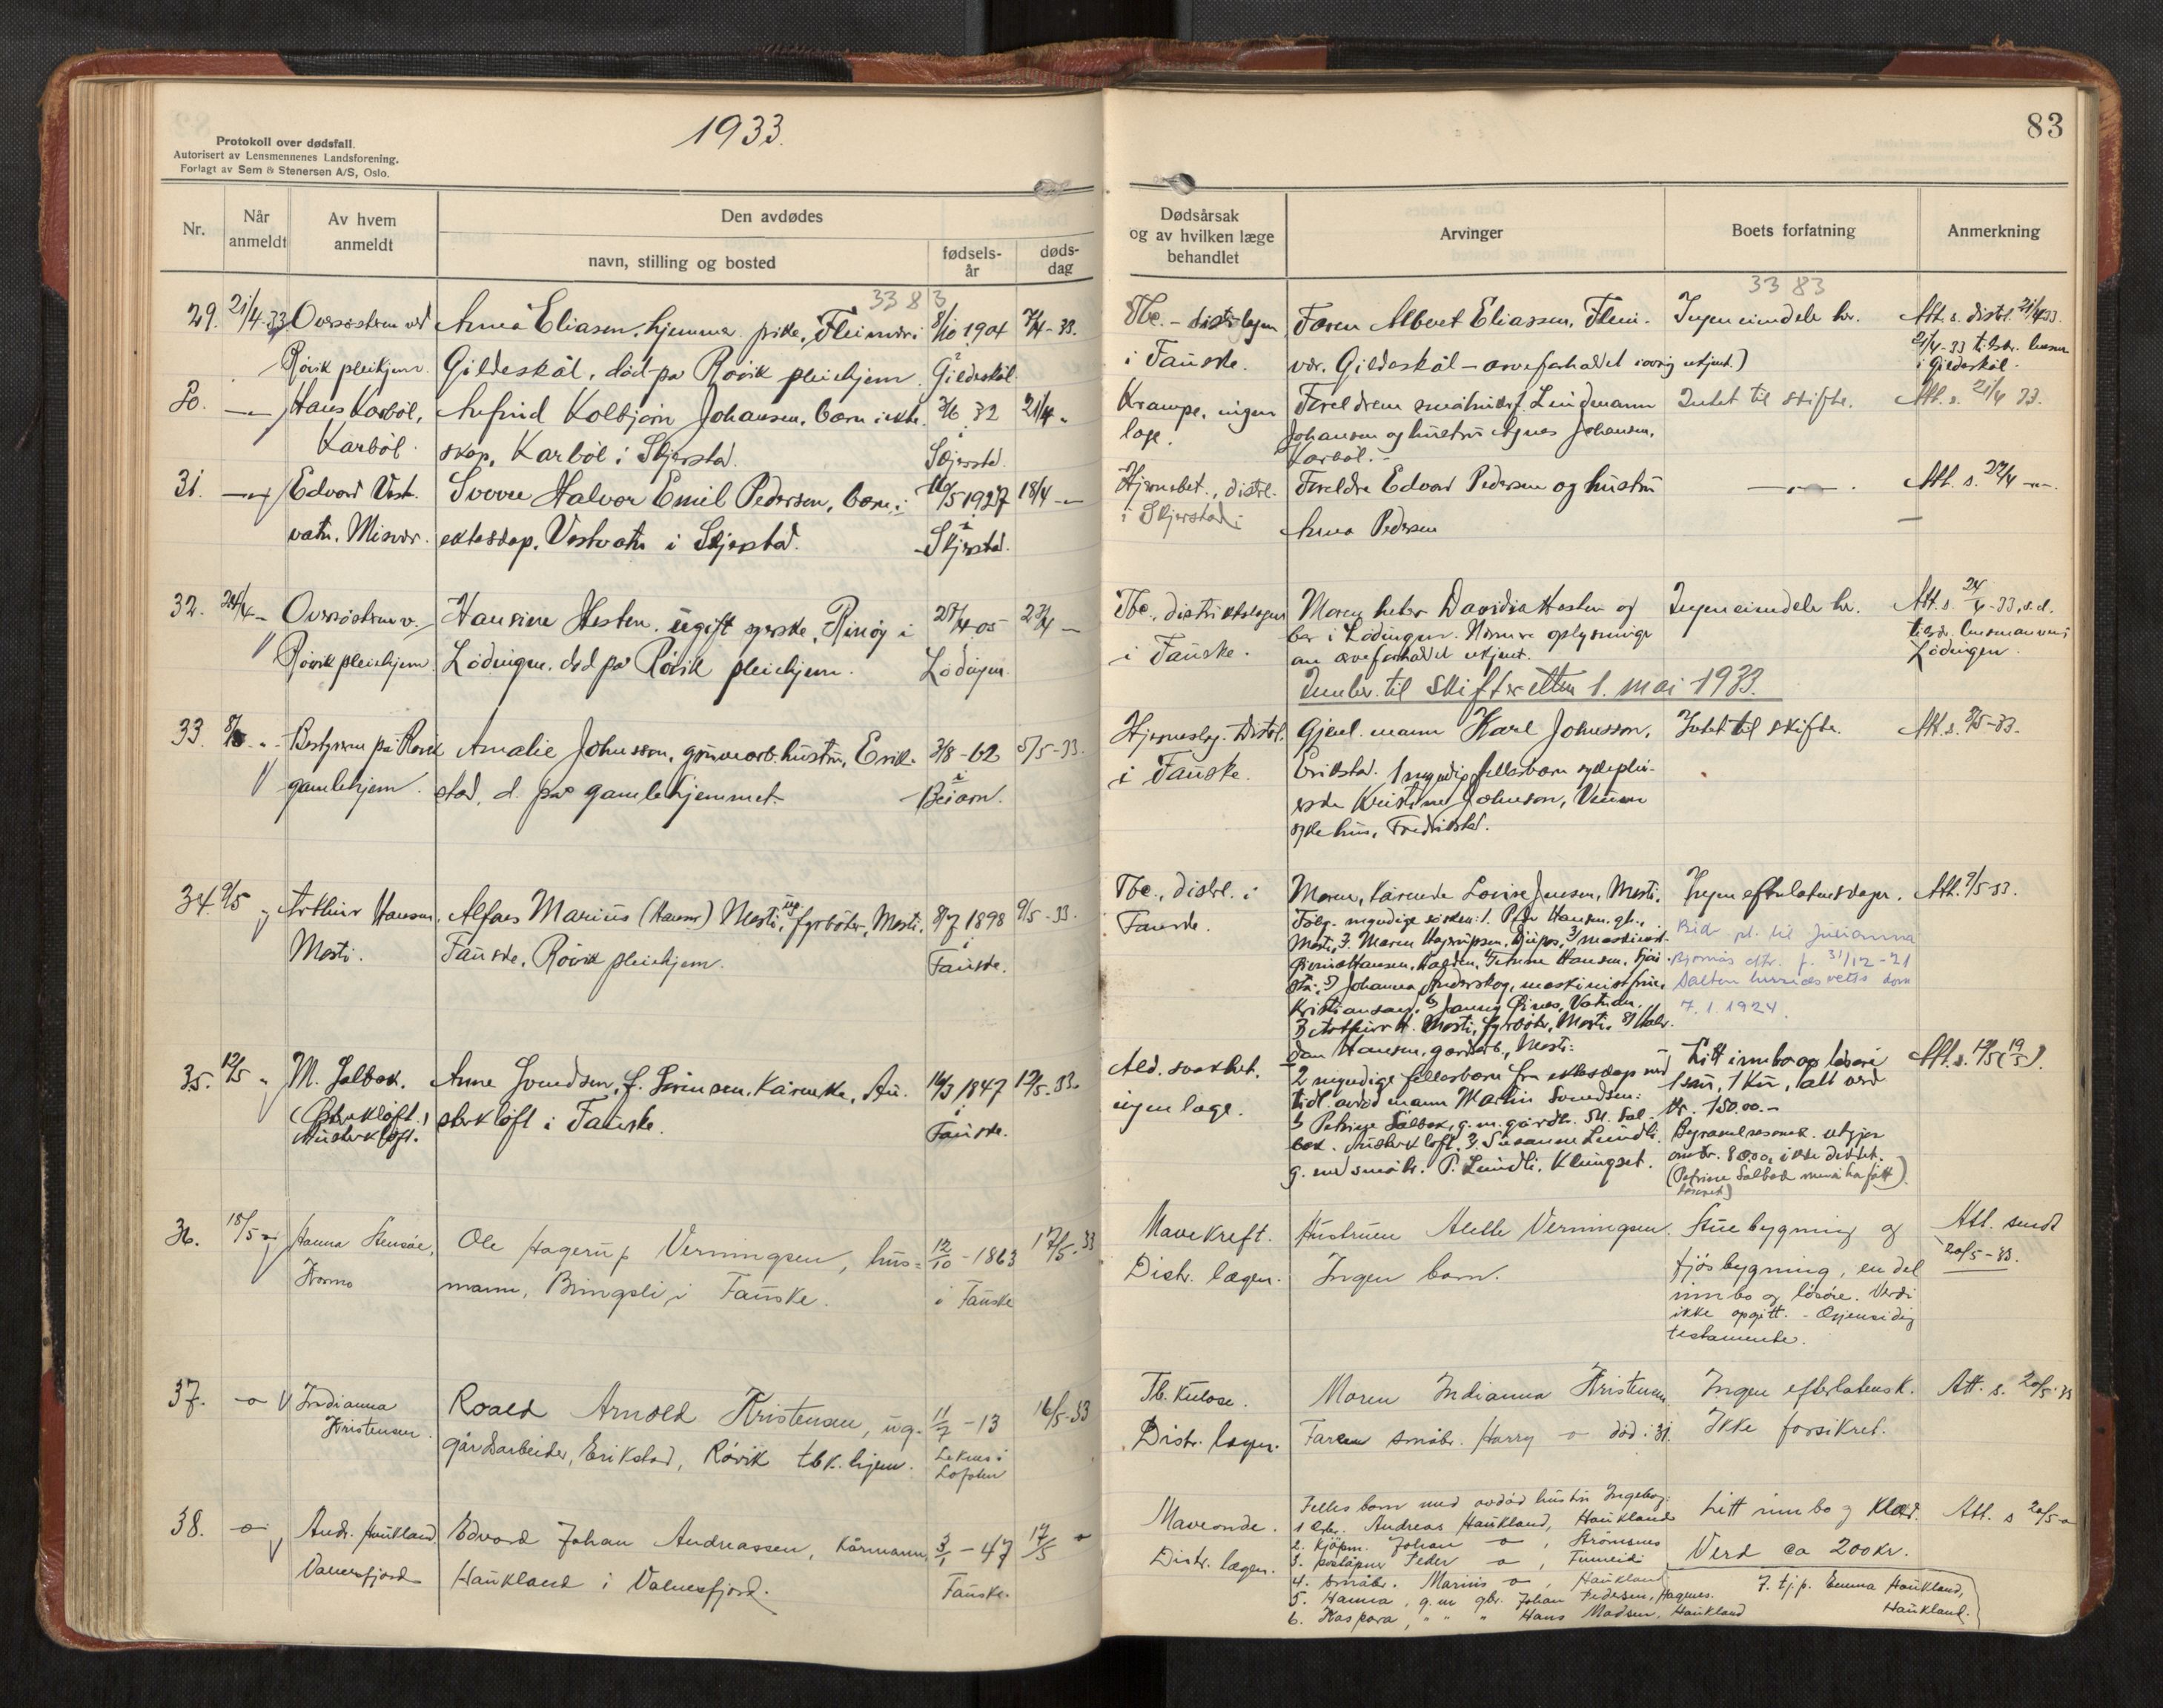 1933.
83
Protokoll over dødsfall.
Autorisert av Lensmennenes Landsforening.
Forlagt av Sem & Stenersen A/S, Oslo.
Nr.
Når anmeldt
Av hvem anmeldt
Den avdødes
navn, stilling og bosted
fødsels-år
døds-dag
Dødsårsak
og av hvilken læge
behandlet
Arvinger
Boets forfatning
Anmerkning
3383
3383
29. 21/4-33 Oversøstren ved Anna Eliasen, hjemmev. pike, Fleinvær i 8/10 1904 7/4-33.
Røvik pleiehjem. Gildeskål, død på Røvik pleiehjem. Gildeskål.
Tbc. - distr.lægen Faren Albert Eliassen, Flein- Ingen eiendeler. Att. s. distr. 21/4 33.
i Fauske. vær, Gildeskål - arveforholdet iøvrig ukjent.) 21/4-33 tilskr. lensm.
i Gildeskål.
30. Hans Karbøl, Arfind Kolbjørn Johansen, barn i ekte- 32 21/4
Karbøl. skap, Karbøl i Skjerstad. Skjerstad.
Krampe, ingen Foreldrene småbruker Lindmann Intet til skifte. Att. s. 21/4 33.
læge. Johansen og hustru Agnes Johansen,
Karbøl.
31. Edvard Vest- Sverre Halvor Emil Pedersen, barn i 16/5 1927 18/4
vatn, Misvær. ekteskap, Vestvatn i Skjerstad. i Skjerstad.
Hjernebet., distrl. Foreldre Edvard Pedersen og hustru Att. s.
i Skjerstad Anna Pedersen
32. 24/4 Oversøstren v. Hansine Hesten, ugift syerske, Rinøy i 05
Røvik pleiehjem. Lødingen, død på Røvik pleiehjem. Lødingen.
Tbc., distriktslægen Moren heter Davidia Hesten og Ingen eiendeler. Att. s. 24/4-33, s.d.
i Fauske. bor i Lødingen. Nærmere oplysninger tilskr. lensmannen i
om arveforholdet ukjent. Lødingen.
Innber. til skifteretten 1. mai 1933.
33. 8/5 Bestyreren på Røvik Amalie Johnsson, gruvearb.hustru, Erik- 3/8-62 5/5-33.
gamlehjem. stad, d. på gamlehjemmet. i Beiarn.
Hjerneslag. Distrl. Gjenl. mann Karl Johnsson, Intet til skifte. Att. s. 8/5-33.
i Fauske. Erikstad. 1 myndig fellesbarn sykeplei-
erske Kristine Johnson,
sykehus, Fredrikstad.
34. 9/5 Arthur Hansen, Alfaes Marius (Hansen) Mosti, ug. fyrbøter, Mosti, 8/7 1898 9/5-33.
Mosti. Fauske, Røvik pleiehjem. i Fauske.
Tbc., distrl. i Moren, kårenke Lovise Jensen, Mosti. Ingen efterlatenskaper. Att. 9/5-33.
Fauske. Følg. myndige søsken: 1. Peder Hansen, gbr.,
Mosti, 2. Maren Hagerupsen, Djupos, 3/ maskinist
Hansen, Halden, Hansen,
Johanna Anderskog, maskinistfrue,
Kristiansand, 6)
7, Arthur H. Mosti, fyrbøter, Mosti, 8) Hal-
dan Hansen, gårdarb., Mosti.
Bid. pl. til Julianna
Bjørnås dtr. f. 31/12-21
Salten herredsretts dom
7.1.1924.
35. 12/5 M. Salbak. Anne Svendsen, f. Sørensen, kårenke, Au- 1847 12/5-33.
(Østerkløft.) sterkløft i Fauske. i Fauske.
Austerkløft.
Ald. svakhet, 2 myndige fellesbarn fra ekteskap med Litt innbo og løsøre
ingen læge. tidl. avdød mann Martin Svendsen: 1 sau, 1 ku, alt verd
1) Petrine Salbak, g.m. gårdbr. M. Sal- kr. 150.00.-
bak, Austerkløft, 2) Susanne Lundli, Begravelsesomk. utgjør
g. med småbr. P. Lundli, Klungset. omkr. 80.00, ikke dekket.
(Petrine Salbak ha fått
løsøret)
36. 18/5 Hanna Stensåe, Ole Hagerup Verningsen, hus- 12/10-1863 17/5-33
Kosmo mann, Bringsli i Fauske. i Fauske
Mavekreft. Hustruen Alette Verningsen. Stuebygning og Att. sendt
Distr. lægen. Ingen barn. fjøsbygning, en del 20/5-33.
innbo og løsøre. Verdi
ikke opgitt. - Gjensidig
testamente.
37. Indianna Roald Arnold Kristensen, ug. 11/7-13 16/5-33
Kristensen. gårdsarbeider, Erikstad, Røvik tbk.hjem. Leknes i
Lofoten
Tb. kulose. Moren Indianna Kristensen Ingen efterlatensk. Att. s. 20/5-33
Distr. lægen. Faren småbr. Harry død i 31. Ikke forsikret.
38. Andr. Haukland, Edvard Johan Andreassen, kårmann, 3/1-47 17/5
Valnesfjord Haukland i Valnesfjord. Fauske.
Maveonde. Felles barn med avdød hustru Ingeborg: Litt innbo og klær. Att. s 20/5
Distr. lægen. 1 Gbr. Andreas Haukland, Haukland Verd ca 200 kr.
2. Kjøpm. Johan , Strømsnes
3. poståpner Peder , Finneid
4. Småbr. Marius , Haukland
5. Hanna, g.m gbr. Johan Pedersen, Hagnes.
6. Kaspara, " " " Hans Madsen, Haukland
7. tj.p. Emma Haukland,
Haukland.